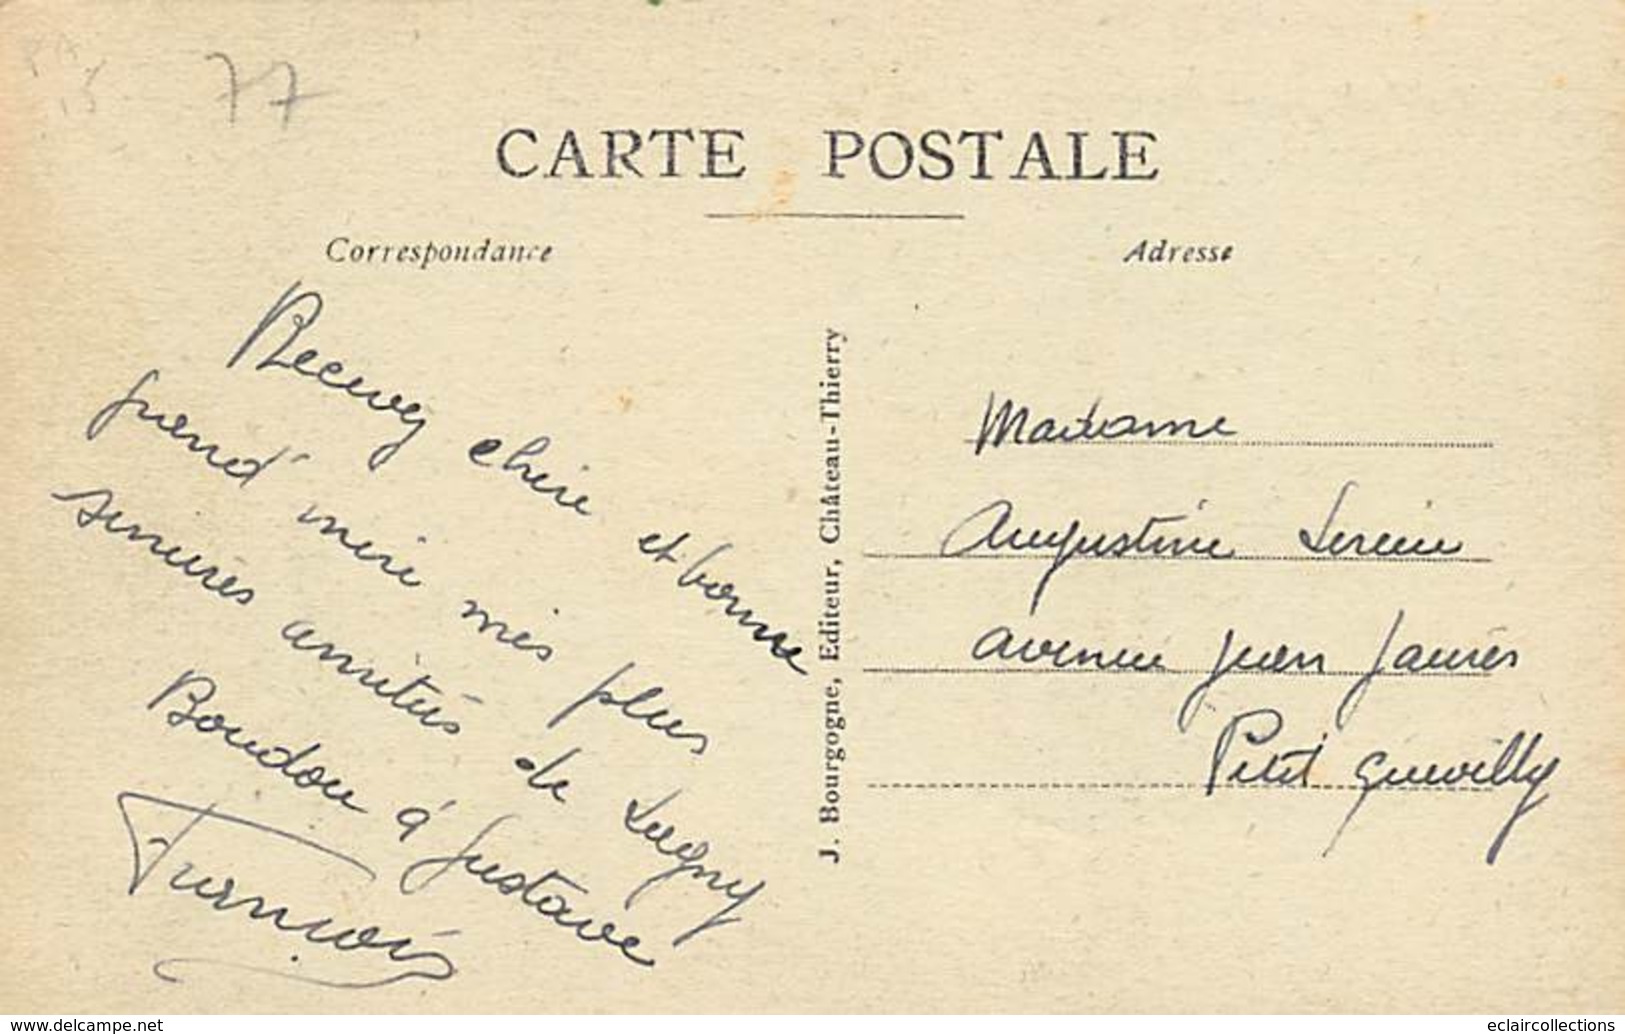 77
CARTE POSTALE
Correspondance
Adresse
Recevez chère et bonne
grand' mère mes plus
sincères amitiés de Lugny
Boudou à Gustave
François
J. Bourgogne, Editeur, Château-Thierry
Madame
Augustine
avenue Jean Jaurès
Petit Quevilly
www.delcampe.net
eclaircollections